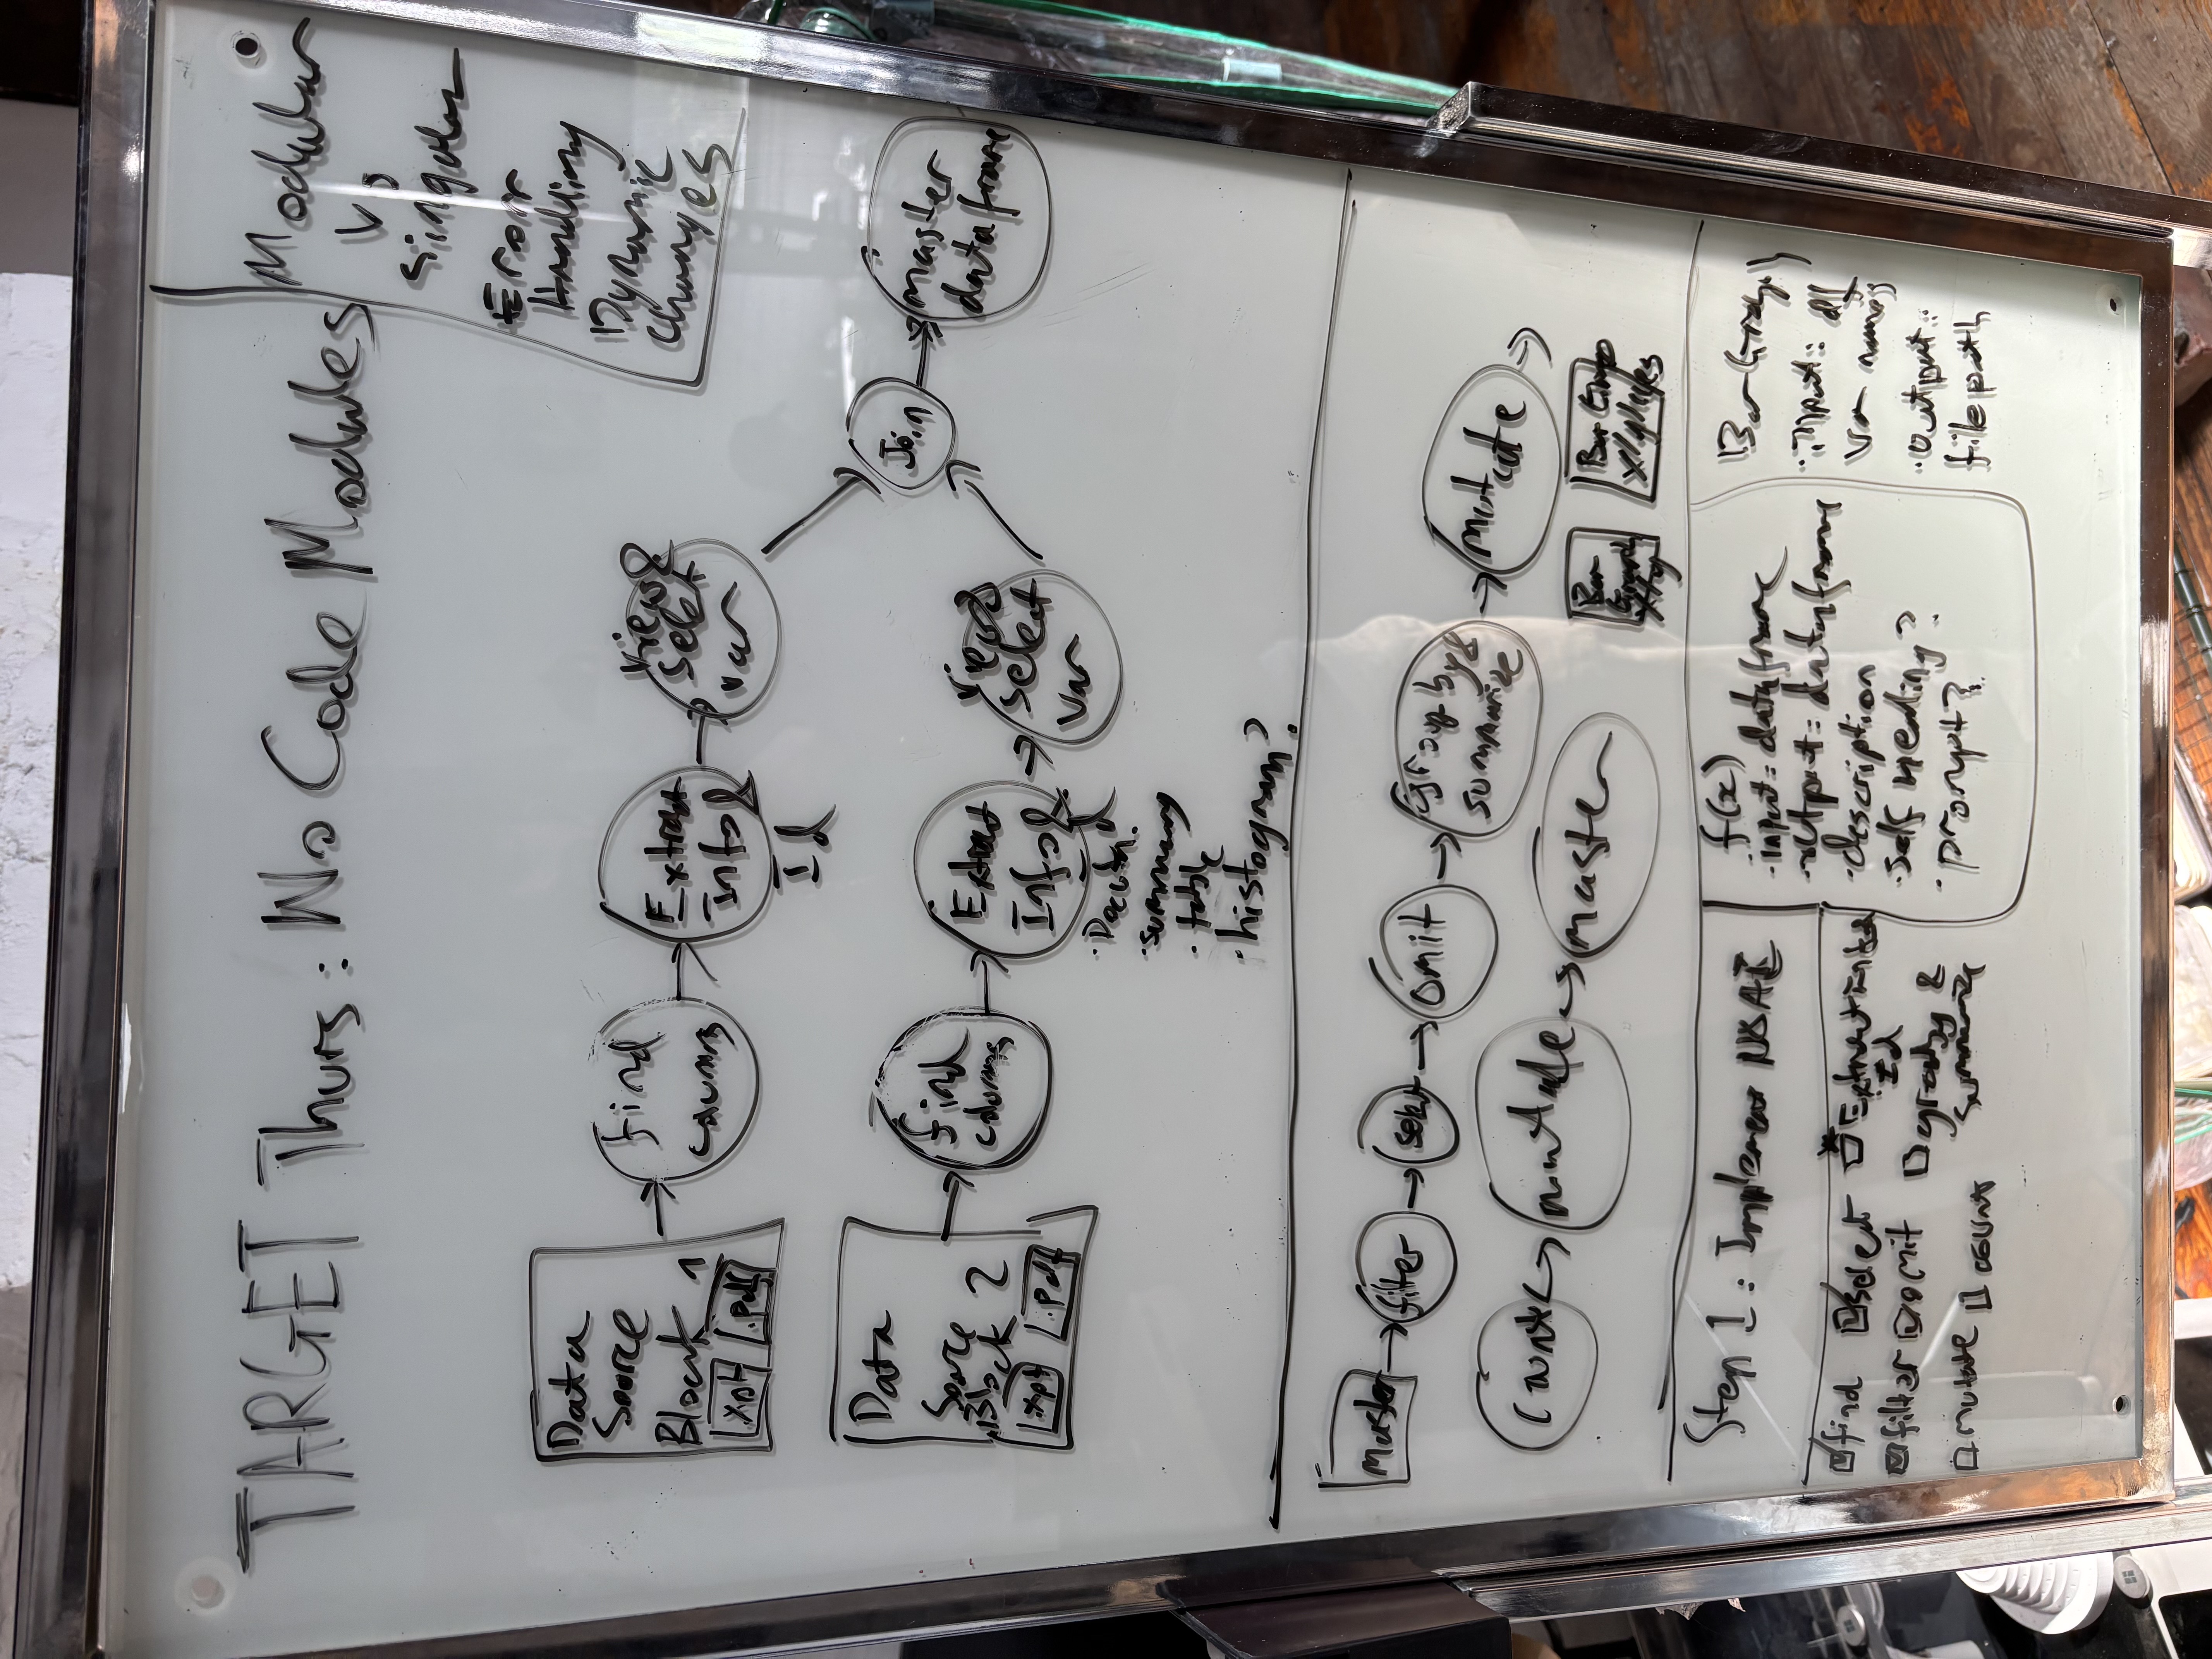 TARGET Thurs: No Code Modules
Modular
Vs
Singular
Error
Handling
Dynamic
Changes
Data
Source
Block 1
.xpt .pdf
find
columns
Extract
Info &
Id
view &
select
var
Data
Source
Block 2
.xpt .pdf
find
columns
Extract
Info &
Id
view &
select
var
Join
master
dataframe
· summary
· table
· histogram?
master
filter
select
omit
group by &
summarize
mutate
count
mutate
master
Bar
Graph
x/y
Bar Graph
x/y/
Step 1: Implement
find select Extract info &
Id
filter omit group by &
summarize
mutate count
f(x)
· input: dataframe
· output: dataframe
· description
· self healing?
· prompt?
Bar Graph
· input: df
var names
· output:
filepath